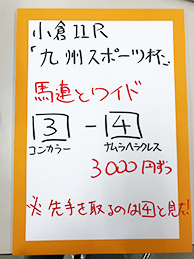 小倉11R
「九州スポーツ杯」
馬連とワイド
3 - 4
コンカラー ナムラヘラクレス
3000円ずつ
※先手を取るのは4と見た!